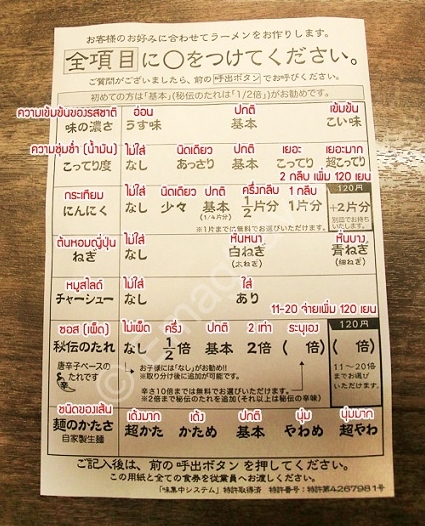 お客様のお好みに合わせてラーメンをお作りします。
全項目に○をつけてください。
ご質問がございましたら、前の 呼出ボタン でお呼びください。
初めての方は「基本」(秘伝のたれは「1/2倍」)がお勧めです。
ความเข้มข้นของรสชาติ อ่อน ปกติ เข้มข้น
味の濃さ うす味 基本 こい味
ความชุ่มช่ำ (น้ำมัน) ไม่ใส่ นิดเดียว ปกติ เยอะ เยอะมาก
こってり度 なし あっさり 基本 こってり 超こってり
2 กลีบ เพิ่ม 120 เยน
กระเทียม ไม่ใส่ นิดเดียว ปกติ ครึ่งกลีบ 1 กลีบ 120円
にんにく なし 少々 基本 1/2片分 1片分 +2片分
(1/4片分)
※1片までは無料でお選びいただけます。
別皿でお持ちいたします。
ต้นหอมญี่ปุ่น ไม่ใส่ หั่นหนา หั่นบาง
ねぎ なし 白ねぎ 青ねぎ
(太ねぎ) (細ねぎ)
หมูสไลด์ ไม่ใส่ ใส่
チャーシュー なし あり
11-20 จ่ายเพิ่ม 120 เยน
ซอส (เผ็ด) ไม่เผ็ด ครึ่ง ปกติ 2 เท่า ระบุเอง 120円
秘伝のたれ なし 1/2倍 基本 2倍 ( 倍) ( 倍)
唐辛子ベースのたれです
お子様には「なし」がお勧め!!
※取り分け後に追加が可能です。
11〜20倍までお選びいただけます
※辛さ10倍までは無料でお選びいただけます。
※2倍まで秘伝のたれを追加(それ以上は秘伝の辛味)
ชนิดของเส้น เด้งมาก เด้ง ปกติ นุ่ม นุ่มมาก
麺のかたさ 超かた かため 基本 やわめ 超やわ
自家製生麺
ご記入後は、前の呼出ボタンを押してください。
この用紙と全ての食券を従業員へお渡しください。
「味集中システム」特許取得済 特許番号:特許第4267981号